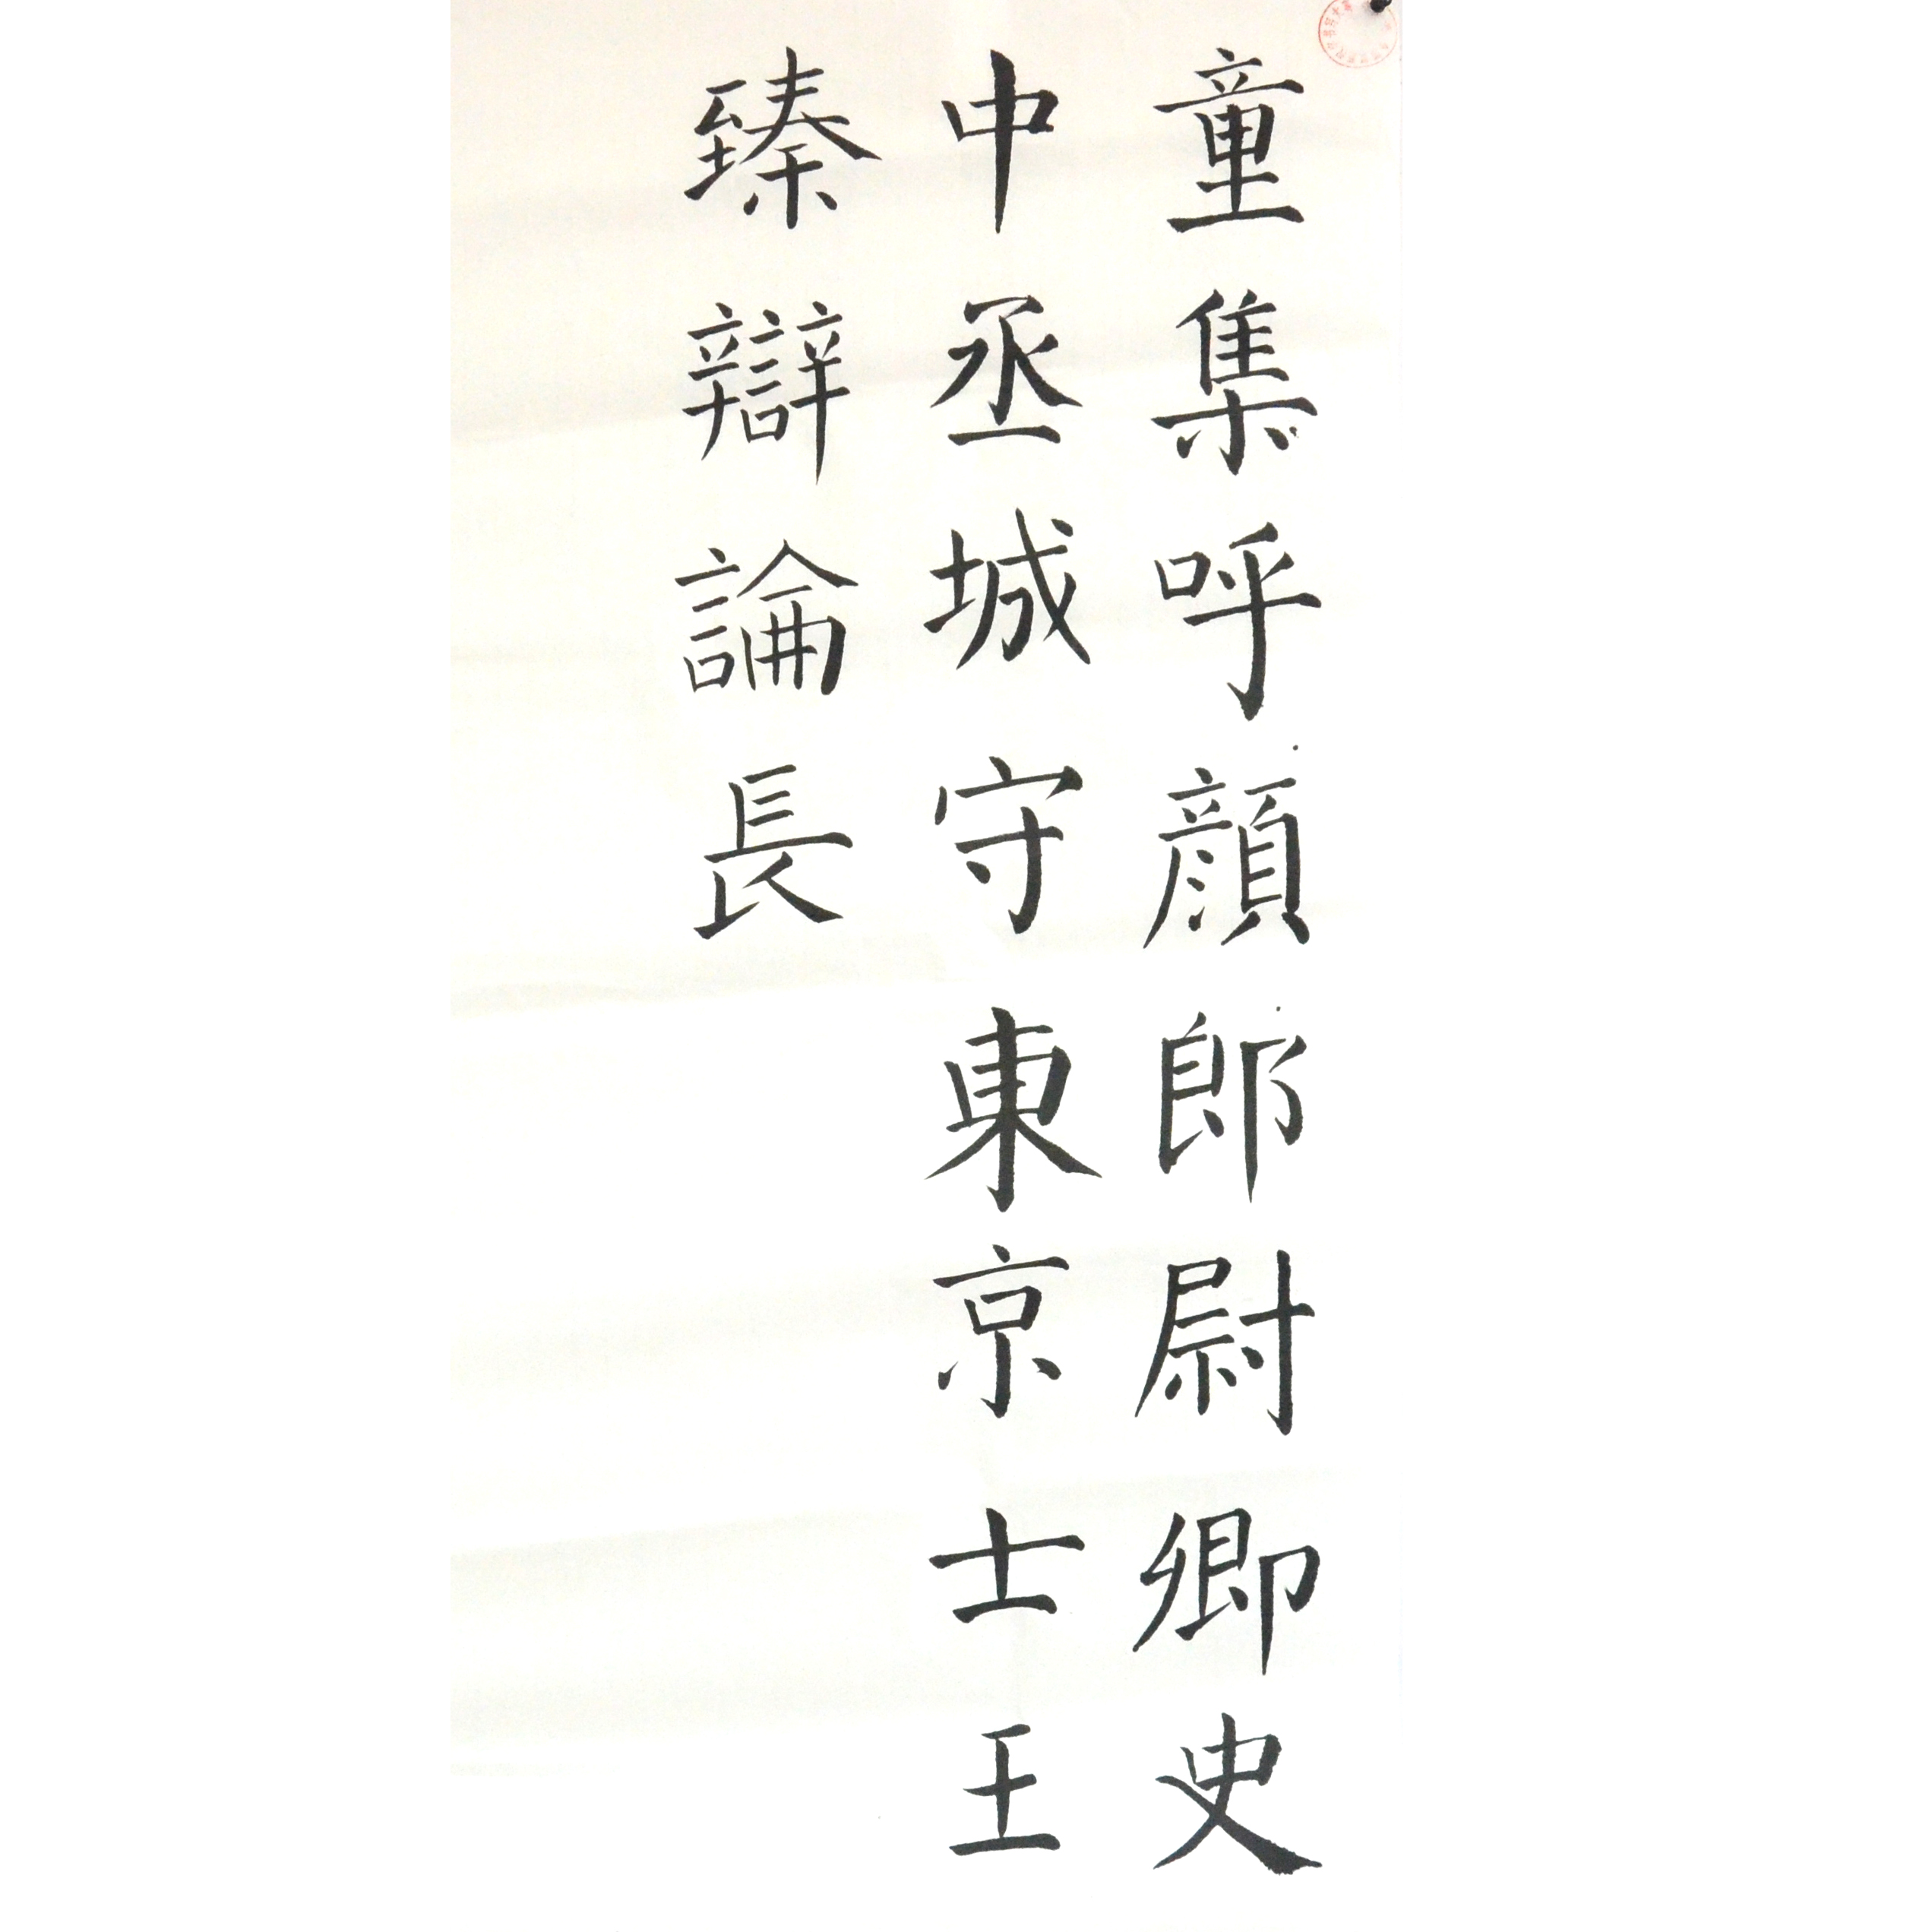 童集呼顔郎尉卿史
中丞城守東京士王
臻辯論長